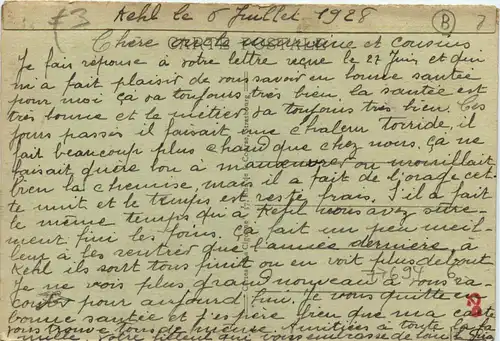 £3 Kehl le 6 Juillet 1928 B 7
Chère oncle marraine et cousins
Je fais réponse à votre lettre reçue le 27 Juin et qui
m'a fait plaisir de vous savoir en bonne santée
pour moi ça va toujours très bien, la santée est
très bonne et le métier va toujours très bien. Ces
jours passés il faisait une chaleur toride, il
fait beaucoup plus chaud que chez nous, ça ne
faisait guère bon à manœuvrer on mouillait
bien la chemise, mais il a fait de l'orage cet-
te nuit et le temps est resté frais. S'il a fait
le même temps qu'à Kehl vous avez sûre-
ment fini les foins. Ça fait un peu meil-
leur à les rentrer que l'année dernière, à
Kehl ils sont tous finit on en voit plus debout
Je ne vois plus grand nouveau à vous ra
conter pour aujourd'hui. Je vous quitte en
77694 6
bonne santée et j'espère bien que ma carte
vous trouve tous de même. Amitiées à toute la fa